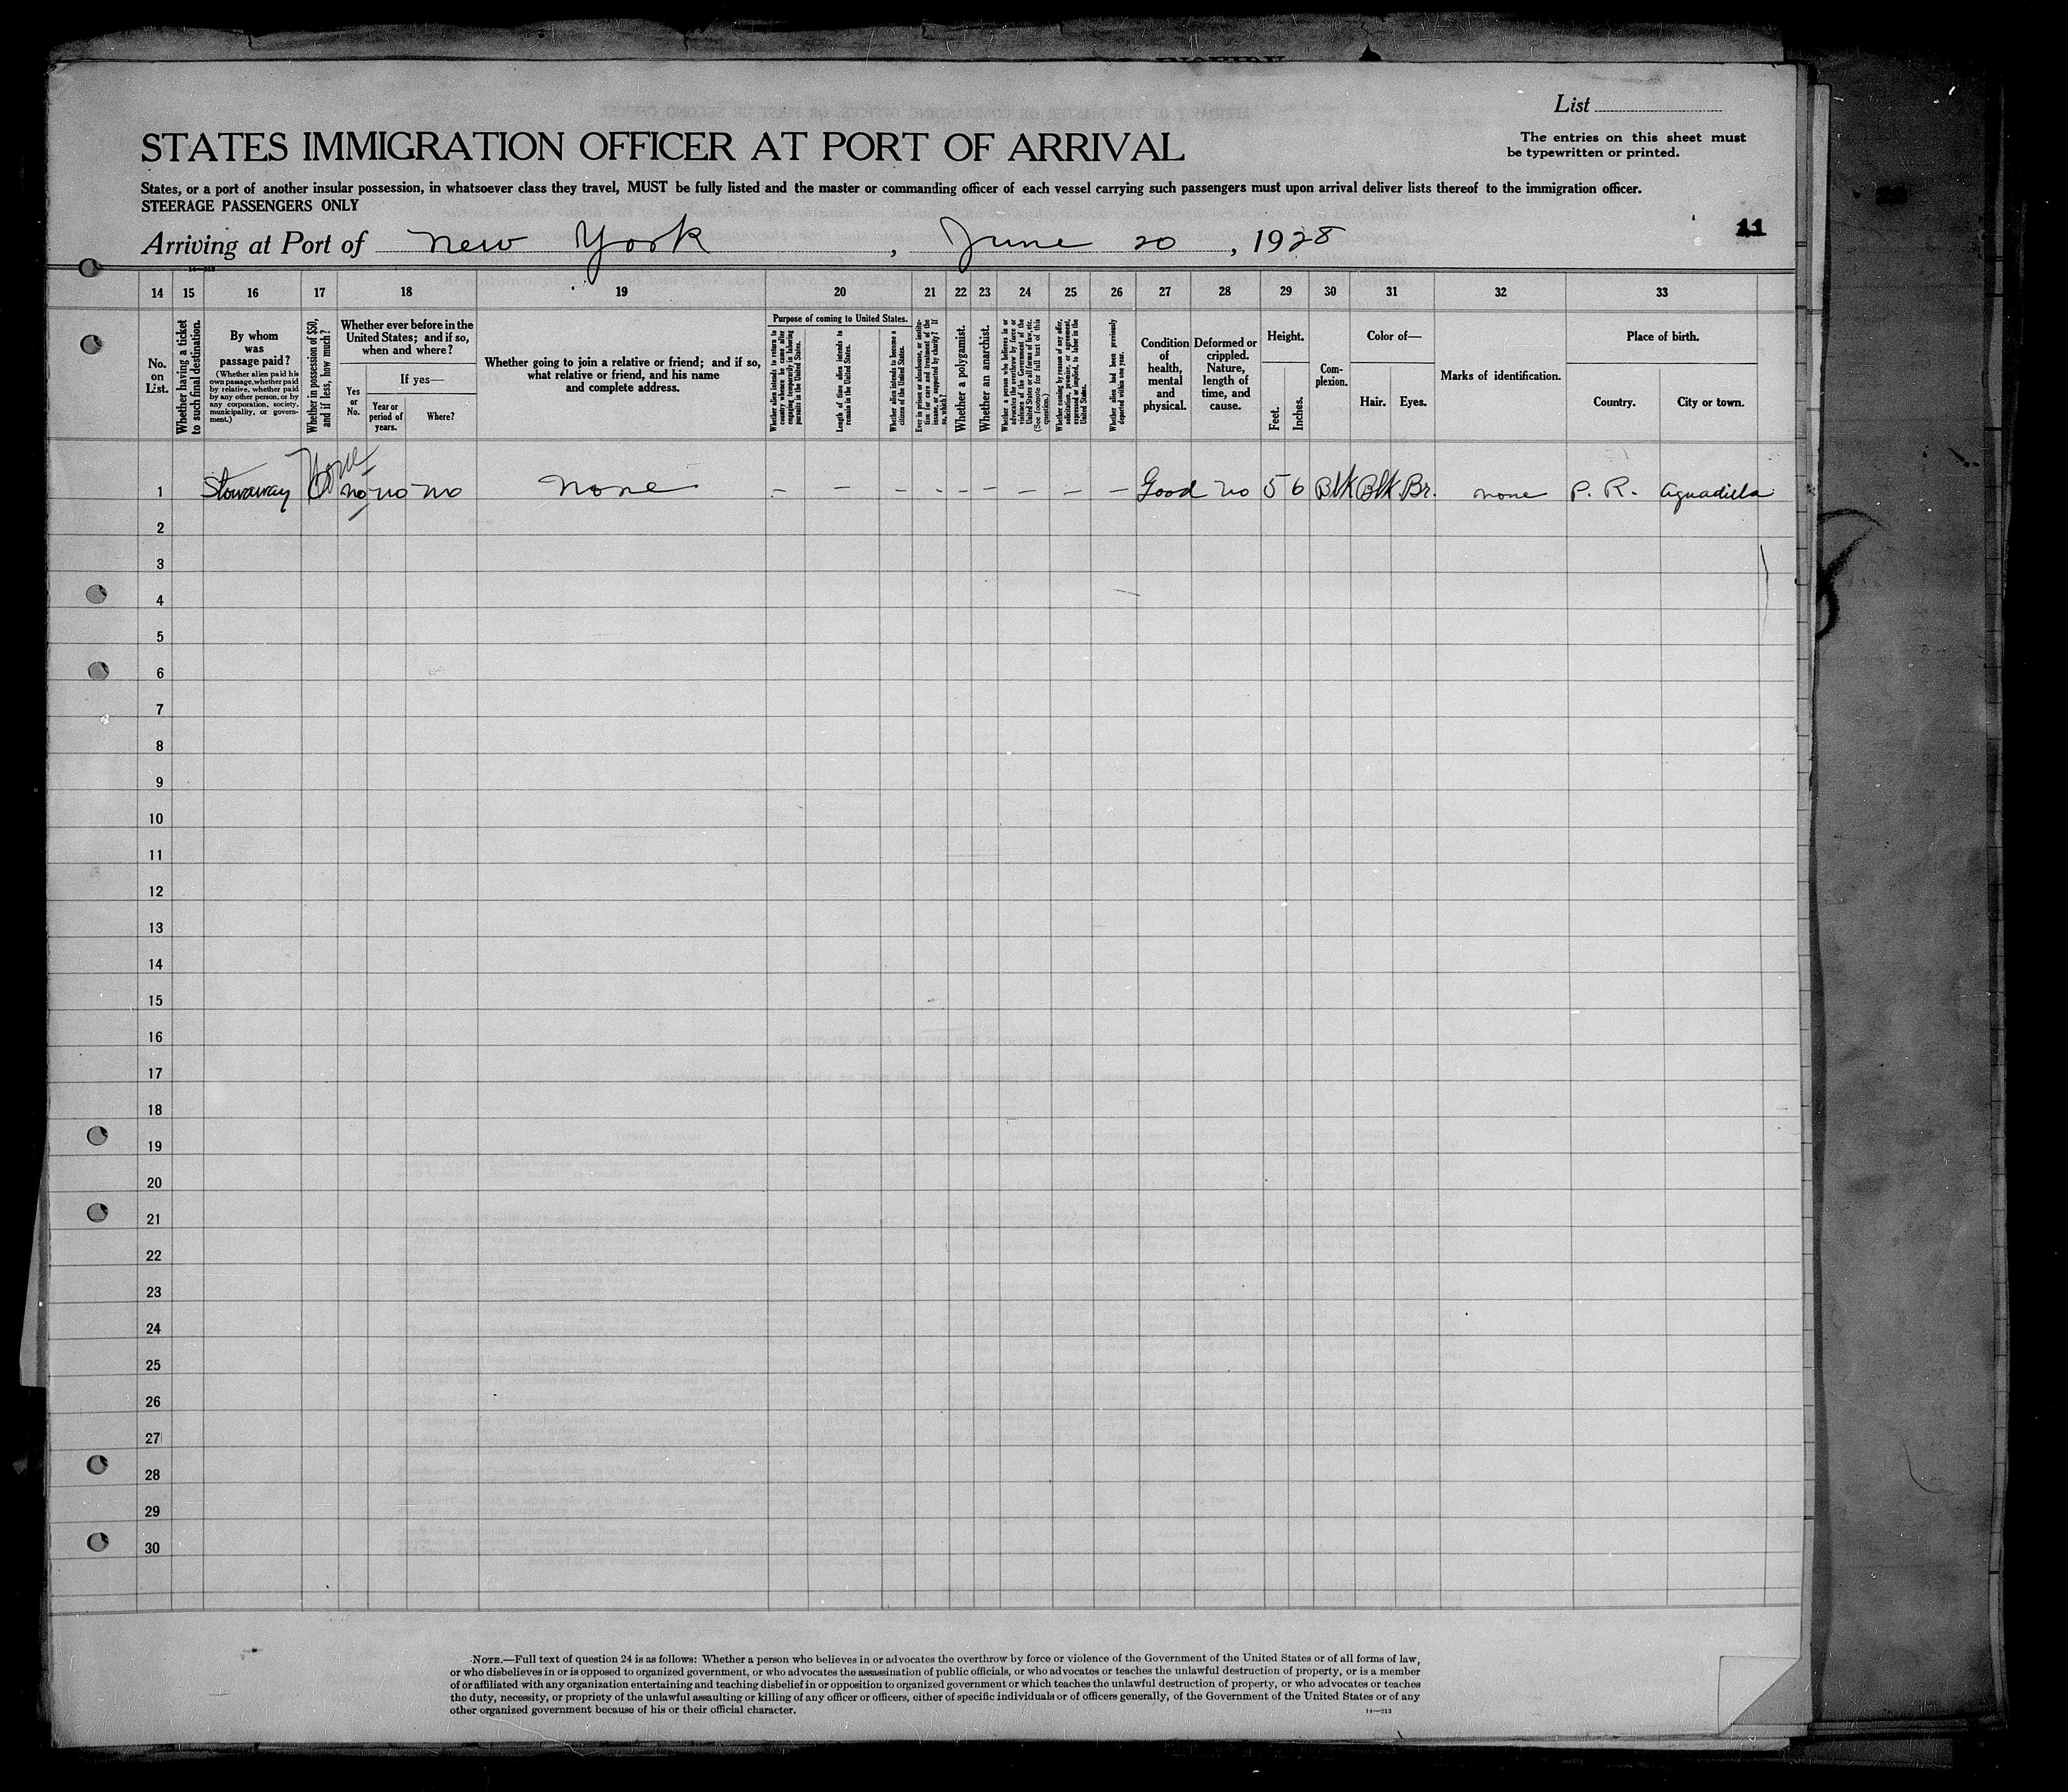 List
The entries on this sheet must
be typewritten or printed.
STATES IMMIGRATION OFFICER AT PORT OF ARRIVAL
States, or a port of another insular possession, in whatsoever class they travel, MUST be fully listed and the master or commanding officer of each vessel carrying such passengers must upon arrival deliver lists thereof to the immigration officer.
STEERAGE PASSENGERS ONLY
11
Arriving at Port of New York, June 20, 1928
14 15 16 17 18 19 20 21 22 23 24 25 26 27 28 29 30 31 32 33
No.
on
List.
Whether having a ticket
to such final destination.
By whom
was
passage paid?
(Whether alien paid his
own passage, whether paid
by relative, whether paid
by any other person, or by
any corporation, society,
municipality, or govern-
ment.)
Whether in possession of $50,
and if less, how much?
Whether ever before in the
United States; and if so,
when and where?
Yes
or
No.
If yes—
Year or
period of
years.
Where?
Whether going to join a relative or friend; and if so,
what relative or friend, and his name
and complete address.
Purpose of coming to United States.
Whether alien intends to return to
country whence he came after
engaging temporarily in laboring
pursuits in the United States.
Length of time alien intends to
remain in the United States.
Whether alien intends to become a
citizen of the United States.
Ever in prison or almshouse, or institu-
tion for care and treatment of the
insane, or supported by charity? If
so, which?
Whether a polygamist.
Whether an anarchist.
Whether a person who believes in or
advocates the overthrow by force or
violence of the Government of the
United States or all forms of law, etc.
(See footnote for full text of this
question.)
Whether coming by reason of any offer,
solicitation, promise, or agreement,
expressed or implied, to labor in the
United States.
Whether alien had been previously
deported within one year.
Condition
of
health,
mental
and
physical.
Deformed or
crippled.
Nature,
length of
time, and
cause.
Height.
Feet.
Inches.
Com-
plexion.
Color of—
Hair. Eyes.
Marks of identification.
Place of birth.
Country. City or town.
None
1 Stowaway no no no none – – – – – – – – – Good no 5 6 Blk Blk Br. none P. R. Aguadilla
2
3
4
5
6
7
8
9
10
11
12
13
14
15
16
17
18
19
20
21
22
23
24
25
26
27
28
29
30
NOTE.—Full text of question 24 is as follows: Whether a person who believes in or advocates the overthrow by force or violence of the Government of the United States or of all forms of law,
or who disbelieves in or is opposed to organized government, or who advocates the assassination of public officials, or who advocates or teaches the unlawful destruction of property, or is a member
of or affiliated with any organization entertaining and teaching disbelief in or opposition to organized government or which teaches the unlawful destruction of property, or who advocates or teaches
the duty, necessity, or propriety of the unlawful assaulting or killing of any officer or officers, either of specific individuals or of officers generally, of the Government of the United States or of any
other organized government because of his or their official character.
14—213